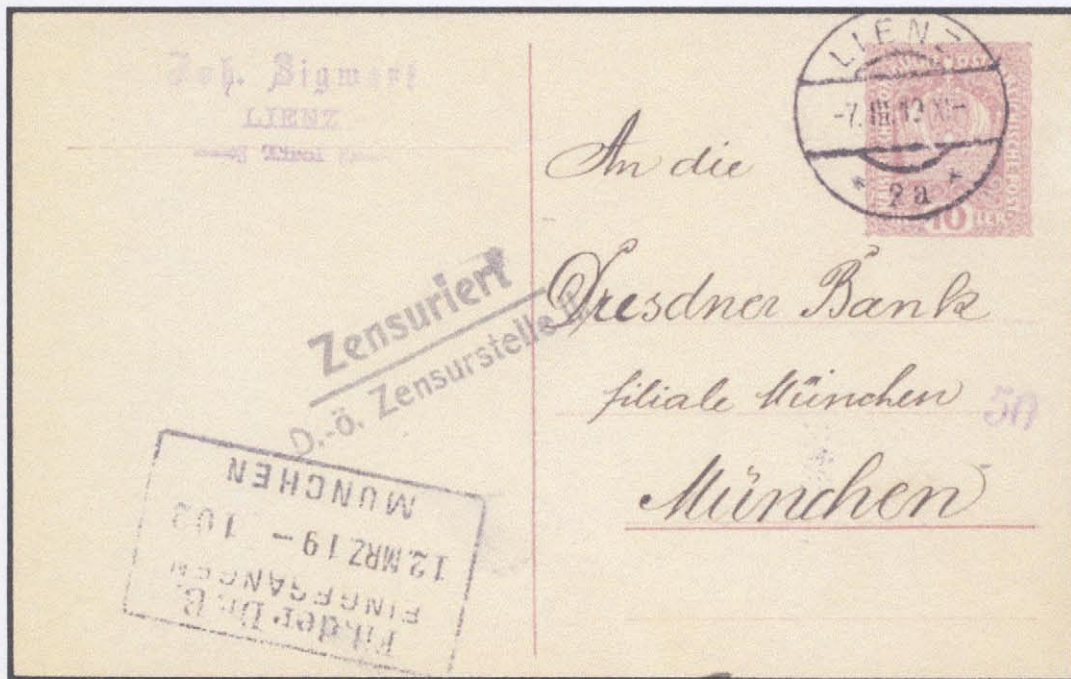 Joh. Sigwart
LIENZ
Tirol
LIENZ
-7.III.19 XI-
* 2a *
10
An die
Dresdner Bank
filiale München
München
50
Zensuriert
D.-ö. Zensurstelle
Fil.der Dr. B.
EINGEGANGEN
12.MRZ19- 102
MUNCHEN